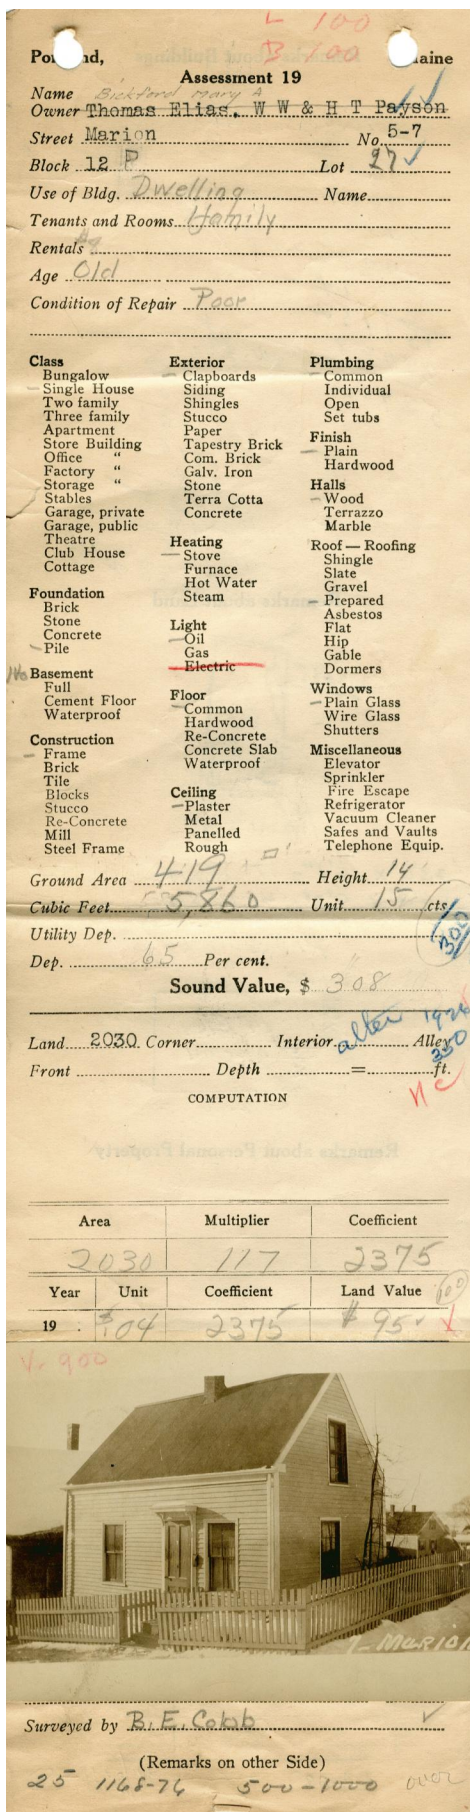 L 100
B 100
Portland, Maine
Assessment 19
Name Bickford Mary A
Owner Thomas Elias, W W & H T Payson
Street Marion No. 5-7
Block 12 P Lot 27 ✓
Use of Bldg. Dwelling Name
Tenants and Rooms 1 family
Rentals
Age Old
Condition of Repair Poor
Class
Bungalow
Single House
Two family
Three family
Apartment
Store Building
Office "
Factory "
Storage "
Stables
Garage, private
Garage, public
Theatre
Club House
Cottage
Foundation
Brick
Stone
Concrete
Pile
No Basement
Full
Cement Floor
Waterproof
Construction
Frame
Brick
Tile
Blocks
Stucco
Re-Concrete
Mill
Steel Frame
Exterior
Clapboards
Siding
Shingles
Stucco
Paper
Tapestry Brick
Com. Brick
Galv. Iron
Stone
Terra Cotta
Concrete
Heating
Stove
Furnace
Hot Water
Steam
Light
Oil
Gas
Electric
Floor
Common
Hardwood
Re-Concrete
Concrete Slab
Waterproof
Ceiling
Plaster
Metal
Panelled
Rough
Plumbing
Common
Individual
Open
Set tubs
Finish
Plain
Hardwood
Halls
Wood
Terrazzo
Marble
Roof — Roofing
Shingle
Slate
Gravel
Prepared
Asbestos
Flat
Hip
Gable
Dormers
Windows
Plain Glass
Wire Glass
Shutters
Miscellaneous
Elevator
Sprinkler
Fire Escape
Refrigerator
Vacuum Cleaner
Safes and Vaults
Telephone Equip.
Ground Area 419 Height 14
Cubic Feet 5,860 Unit 15 cts.
300
Utility Dep.
Dep. 65 Per cent.
Sound Value, $ 308
after 1926
350
Land 2030 Corner Interior Alley
Front Depth = ft.
NC
COMPUTATION
Area Multiplier Coefficient
2030 117 2375
Year Unit Coefficient Land Value
100
19 $.04 2375 $ 95
V. 900
7- MARION
Surveyed by B. E. Cobb ✓
(Remarks on other Side)
25 1168-76 500-1000 over